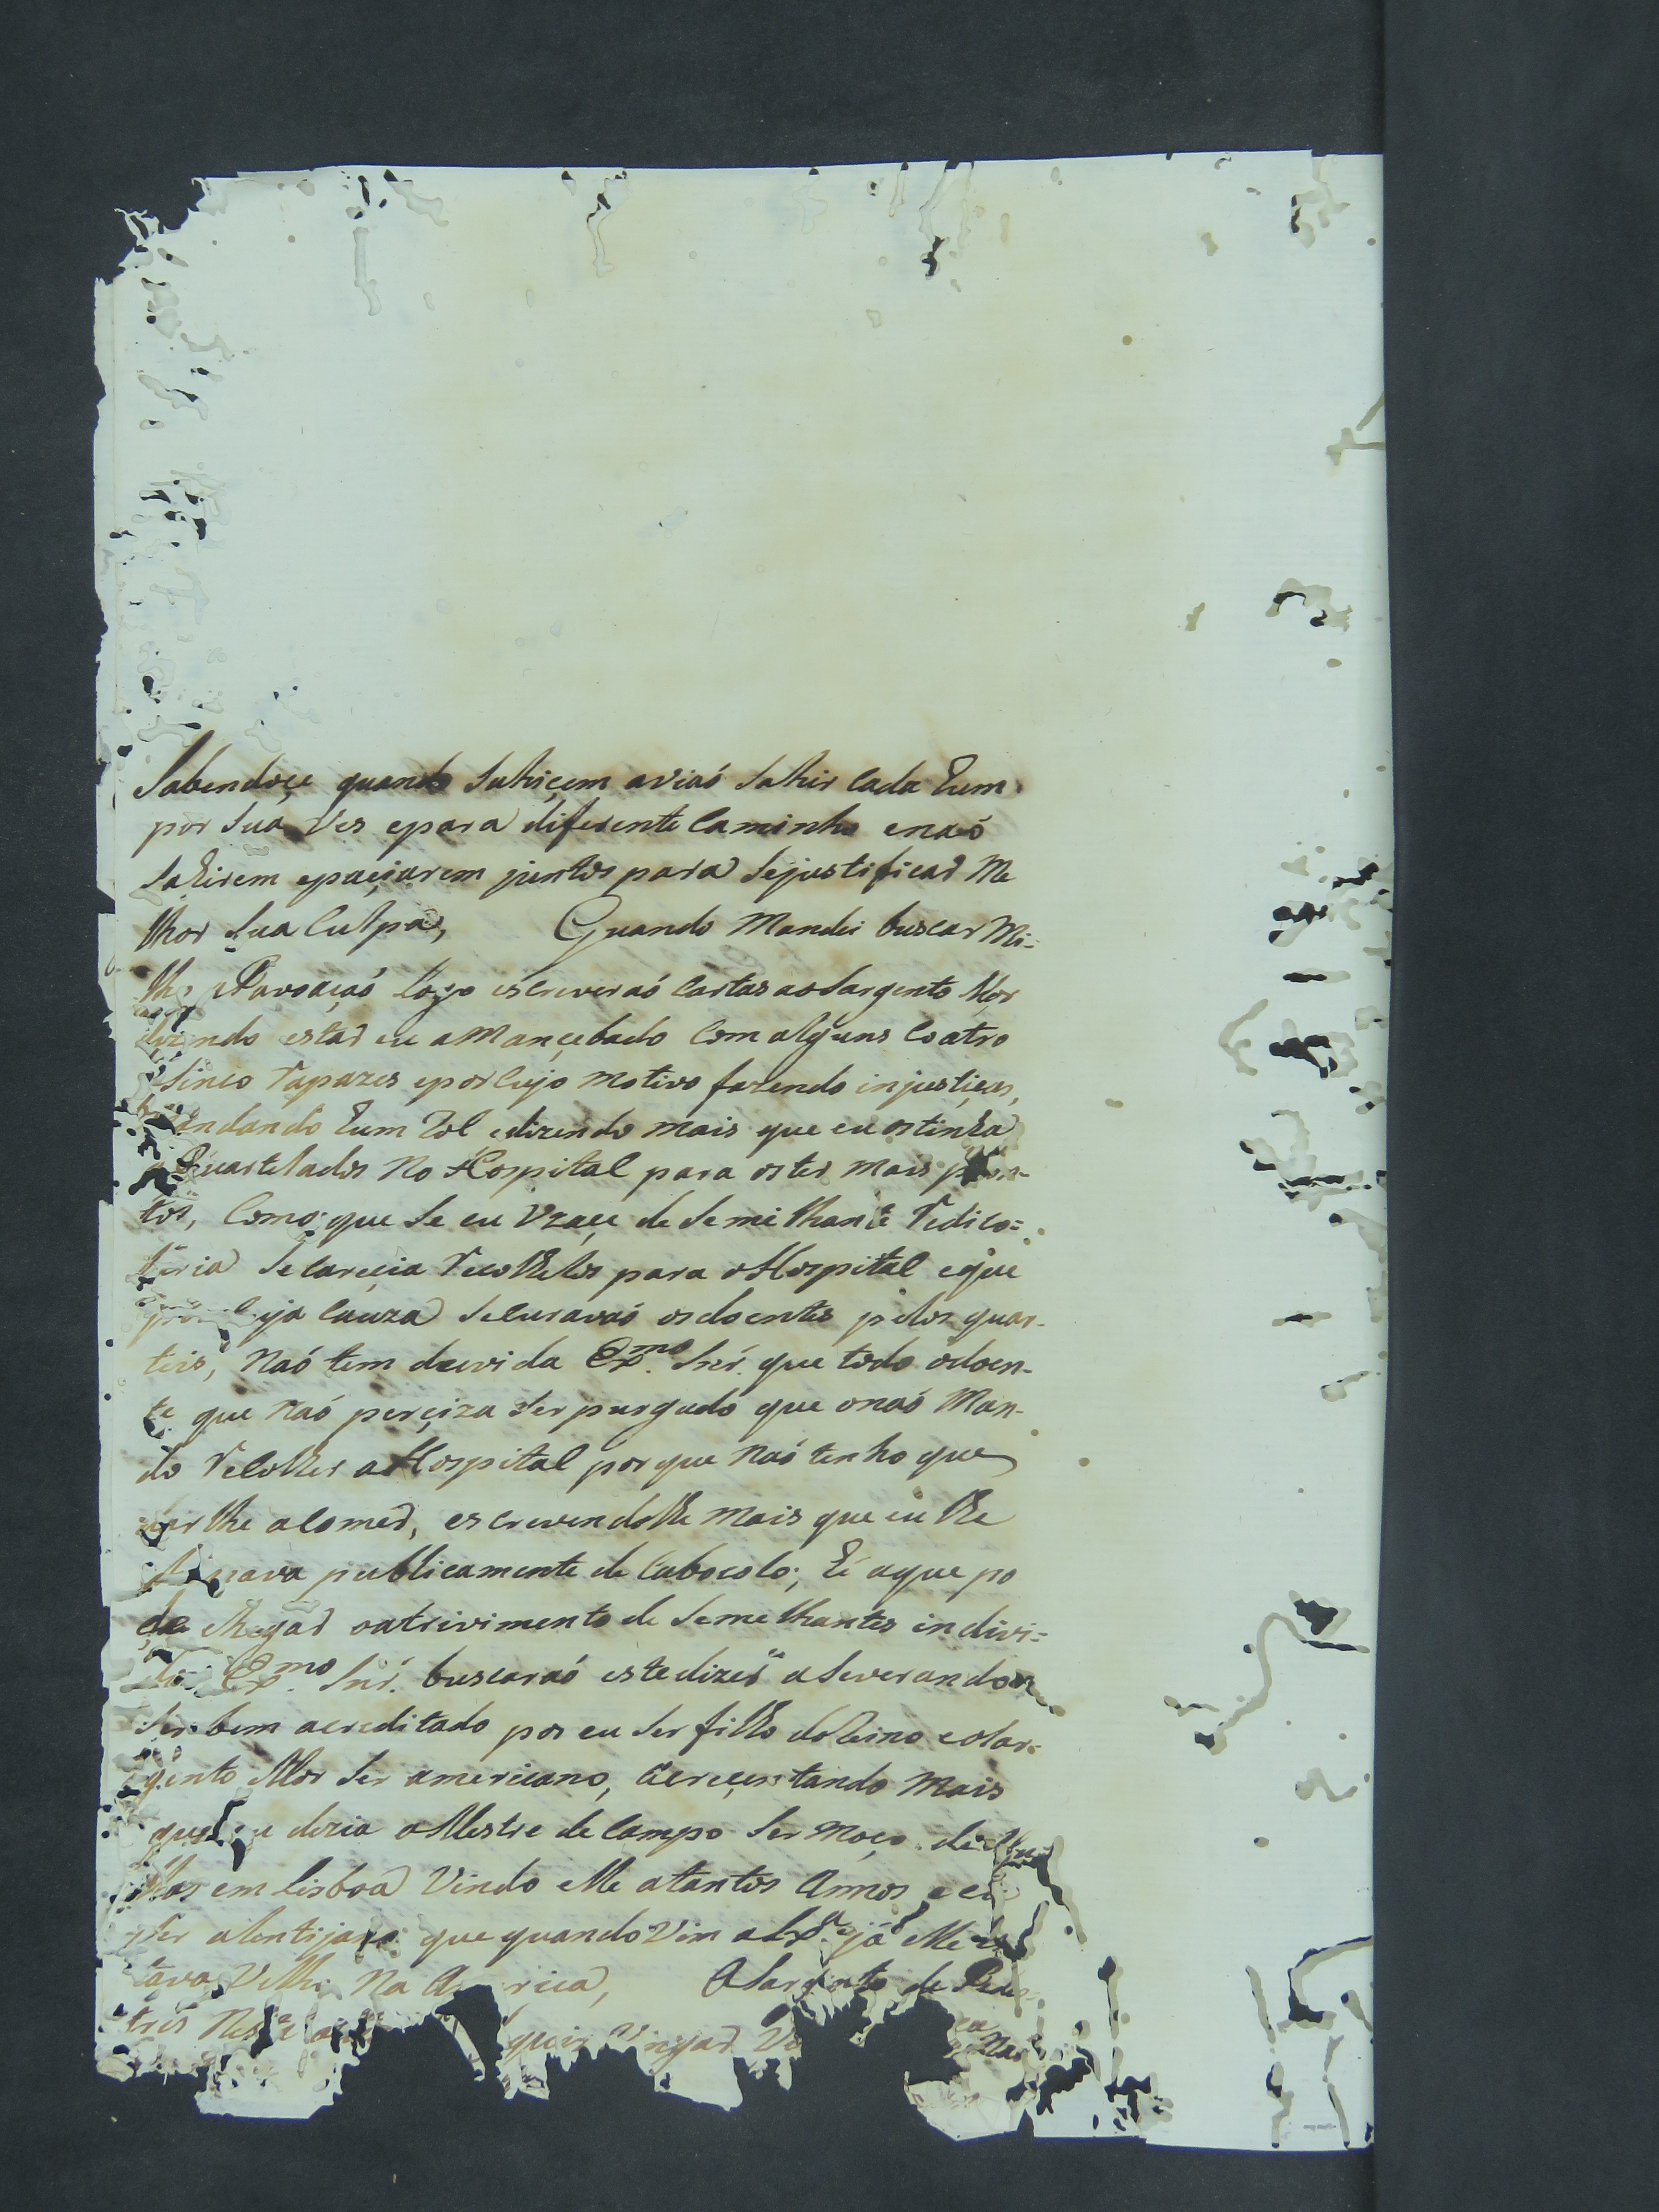 Sabendoçe quando Sahiçem aviaó Sahir Cada hum
por Sua Ves epara diferente Caminho enaó
Sahirem epaçiarem juntos para Sejustificar Me
lhor Sua Culpa, Quando Mandei buscar Mi-
lho Logo escreveraó Cartas aoSargento Mor
estar eu aMançebado Com alguns Coatro
Sinco rapazes eporCujo motivo fazendo injustiças,
hum Rol edizendo mais que eu ostinha
Quartelados No Hospital para oster mais
tos, Como que Se eu Vzaçe de Semilhante redico=
Secareçia recolhelos para oHospital eque
Cauza Securavaó osdoentes pelos quar-
teis, Naó tem duvida Ex.mo Snr. que todo odoen-
te que Naó perçiza Ser purgado que onaó Man-
do recolher aHospital porque Naó tenho que
lhe aComer, escrevendolhe mais que eu lhe
publicamente de Cabocolo, hé aque po
de chegar oatrivimento de Semelhantes indivi=
Ex.mo Snr. buscaraó estedizer aSeverando
Ser bem acreditado por eu Ser filho doReino eoSar=
gento Mor Ser americano, acreçentando Mais
que eu dizia oMestre de Campo Ser Moço de
em Lisboa Vindo elle atantos Annos e eu
Ser alentijano que quando Vim aLx.a já elle
tava Velho Na America, OSargento de
tres quis Vingar